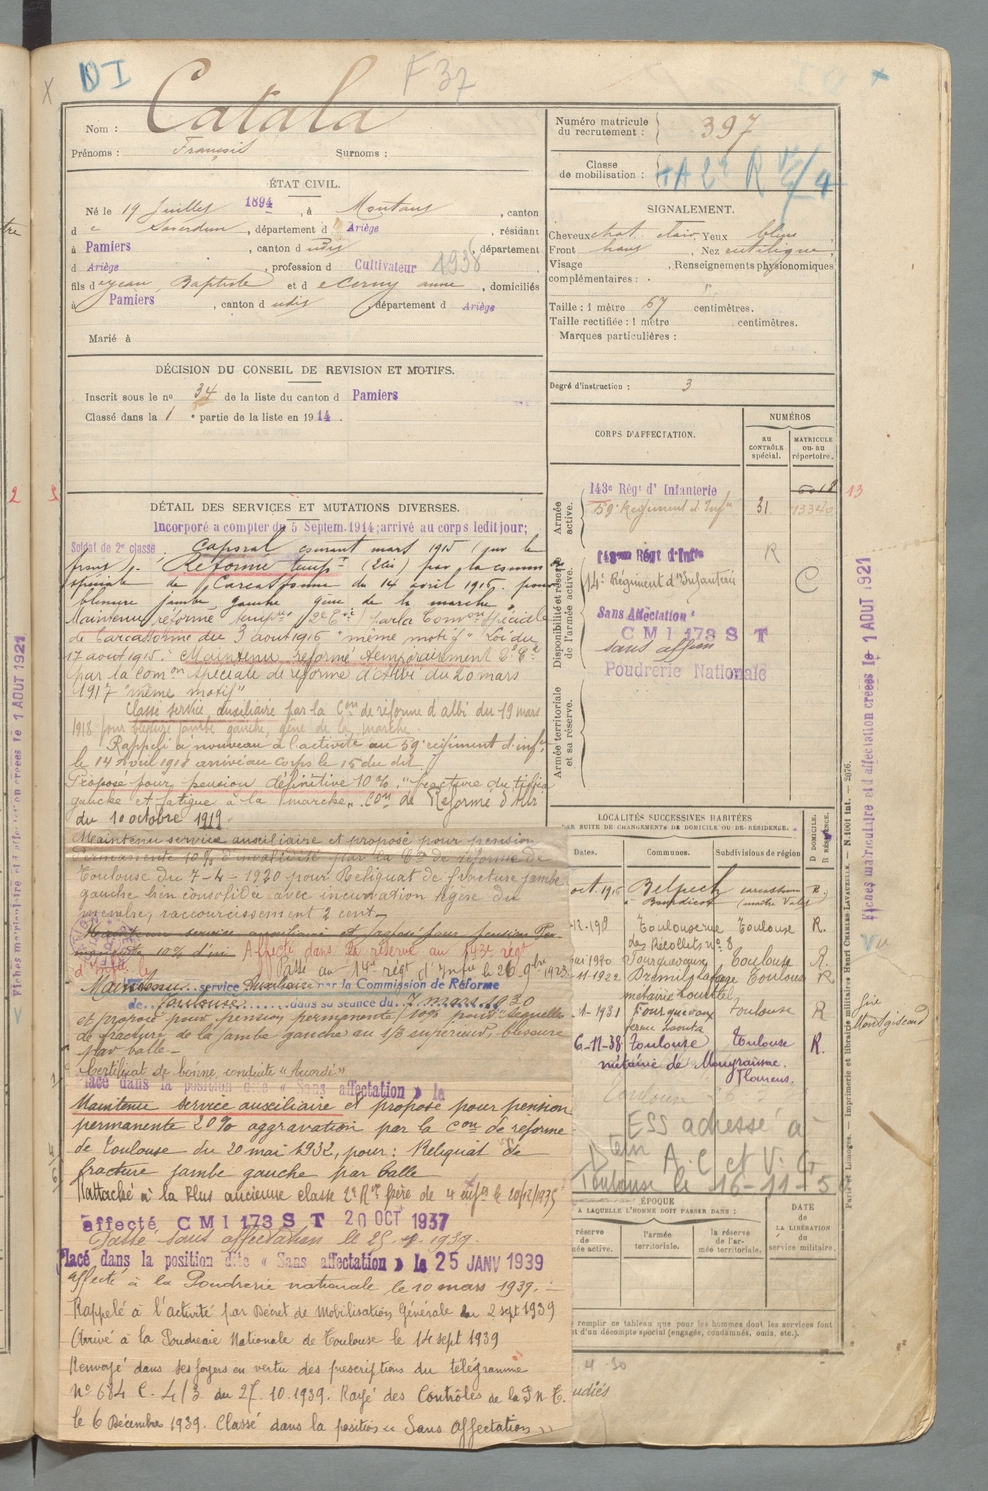 DI
F 37
Nom : Catala
Prénoms : François Surnoms :
ÉTAT CIVIL.
Né le 19 Juillet 1894, à Montaut, canton
d e Saverdun, département d Ariège, résidant
à Pamiers, canton d udit, département
d Ariège, profession d Cultivateur 1938
fils d e Jean Baptiste et d e Cerny anne, domiciliés
à Pamiers, canton d udit, département d Ariège
Marié à
DÉCISION DU CONSEIL DE REVISION ET MOTIFS.
Inscrit sous le no 34 de la liste du canton d Pamiers
Classé dans la 1 e partie de la liste en 1914.
DÉTAIL DES SERVICES ET MUTATIONS DIVERSES.
Incorporé à compter du 5 Septem. 1914; arrivé au corps ledit jour;
Soldat de 2e classe. Caporal courant mars 1915 (sur le
front). Réformé temp. (2e) par la comm.
spéciale de Carcassonne du 14 avril 1915. pour
blessure jambe gauche gêne de la marche.
Maintenu réformé temp. 2e Cie par la Comon spéciale
de Carcassonne du 3 aout 1916 "même motif" Loi du
17 aout 1915. Maintenu réformé temporairement
par la Comon spéciale de réforme d'Albi du 20 mars
1917 "même motif"
Classé service auxiliaire par la Con de réforme d'albi du 19 mars
1918 pour blessure jambe gauche, gêne de la marche.
Rappelé à nouveau à l'activité au 59e régiment d'infie
le 14 avril 1918 arrivé au corps le 15 du dit
Proposé pour pension définitive 10%. "fracture du tibia
gauche et fatigue à la marche". Con de Réforme d'Albi
du 10 octobre 1919.
Maintenu service auxiliaire et proposé pour pension
permanente 10% d'invalidité par la Con de réforme de
Toulouse du 7-4-1920 pour reliquat de fracture jambe
gauche bien consolidée avec incurvation légère du
membre, raccourcissement 2 cent.
Maintenu service auxiliaire et proposé pour pension Per-
manente 10% d'inv. Affecté dans la réserve au 143e régt
d'Infie le Passé au 14e régt d'Infie le 26 9bre 1923
Maintenu service Auxiliaire par la Commission de Réforme
de Toulouse dans sa séance du 7 mars 1930
et proposé pour pension permanente 10% pour séquelle
de fracture de la jambe gauche au 1/3 supérieur, blessure
par balle.
Certificat de bonne conduite "Accordé"
Placé dans la position dite « Sans affectation » le
Maintenu service auxiliaire et proposé pour pension
permanente 20% aggravation par la Con de réforme
de Toulouse du 20 mai 1932, pour : Reliquat de
fracture jambe gauche par balle
Rattaché à la Plus ancienne classe 2e Rve Père de 4 enfts le 10/12/1935
affecté CMI 173 S T 20 OCT 1937
Passé sans affectation le 25 1939.
Placé dans la position dite « Sans affectation » le 25 JANV 1939
Affecté à la Poudrerie nationale le 10 mars 1939.
Rappelé à l'activité par Décret de Mobilisation Générale du 2 sept 1939
Arrivé à la Poudrerie Nationale de Toulouse le 14 sept 1939
Renvoyé dans ses foyers en vertu des prescriptions du télégramme
No 684 C. 4/3 du 27.10.1939. Rayé des Contrôles de la P.N.T.
le 6 Décembre 1939. Classé dans la position « Sans affectation »
Numéro matricule
du recrutement : 397
Classe
de mobilisation :
SIGNALEMENT.
Cheveux chat. clair. Yeux bleus
Front haut, Nez rectiligne
Visage , Renseignements physionomiques
complémentaires :
Taille : 1 mètre 67 centimètres.
Taille rectifiée : 1 mètre centimètres.
Marques particulières :
Degré d'instruction : 3
CORPS D'AFFECTATION.
NUMÉROS
AU CONTRÔLE spécial.
MATRICULE OU AU répertoire.
Armée active.
143e Régt d'Infanterie
59e Régiment d'Infie 31 13340
Disponibilité et réserve de l'armée active.
143me Régt d'Infie R
14e Régiment d'Infanterie C
Sans Affectation
CMI 173 S T
sans affion
Poudrerie Nationale
Armée territoriale et sa réserve.
LOCALITÉS SUCCESSIVES HABITÉES
PAR SUITE DE CHANGEMENTS DE DOMICILE OU DE RÉSIDENCE.
Dates. Communes. Subdivisions de région D. DOMICILE. R. RÉSIDENCE.
oct. 1916 Belpech Carcassonne R.
Toulouse Toulouse R.
Les Récollets no 8
mai 1920 Fourquevaux Toulouse R.
11.1922 Toulouse R
1-1931 Fourquevaux Toulouse R
6-11-38 Toulouse Toulouse R.
métairie de
Flourens.
ESS adressé à
A.C et V.G
Toulouse le 16-11-5
ÉPOQUE
À LAQUELLE L'HOMME DOIT PASSER DANS :
réserve
mée active.
l'armée
territoriale.
la réserve
de l'ar-
mée territoriale.
DATE
de
LA LIBÉRATION
du
service militaire.
remplir ce tableau que pour les hommes dont les services font
et d'un décompte spécial (engagés, condamnés, omis, etc.).
4-30
udiés
13
Fiches matriculaire et d'affectation créées le 1 AOUT 1921
Vu
Paris et Limoges. — Imprimerie et librairie militaires Henri CHARLES-LAVAUZELLE. — N. 1601 int. — 2976.
Fiches matriculaire et d'affectation créées le 1 AOUT 1921